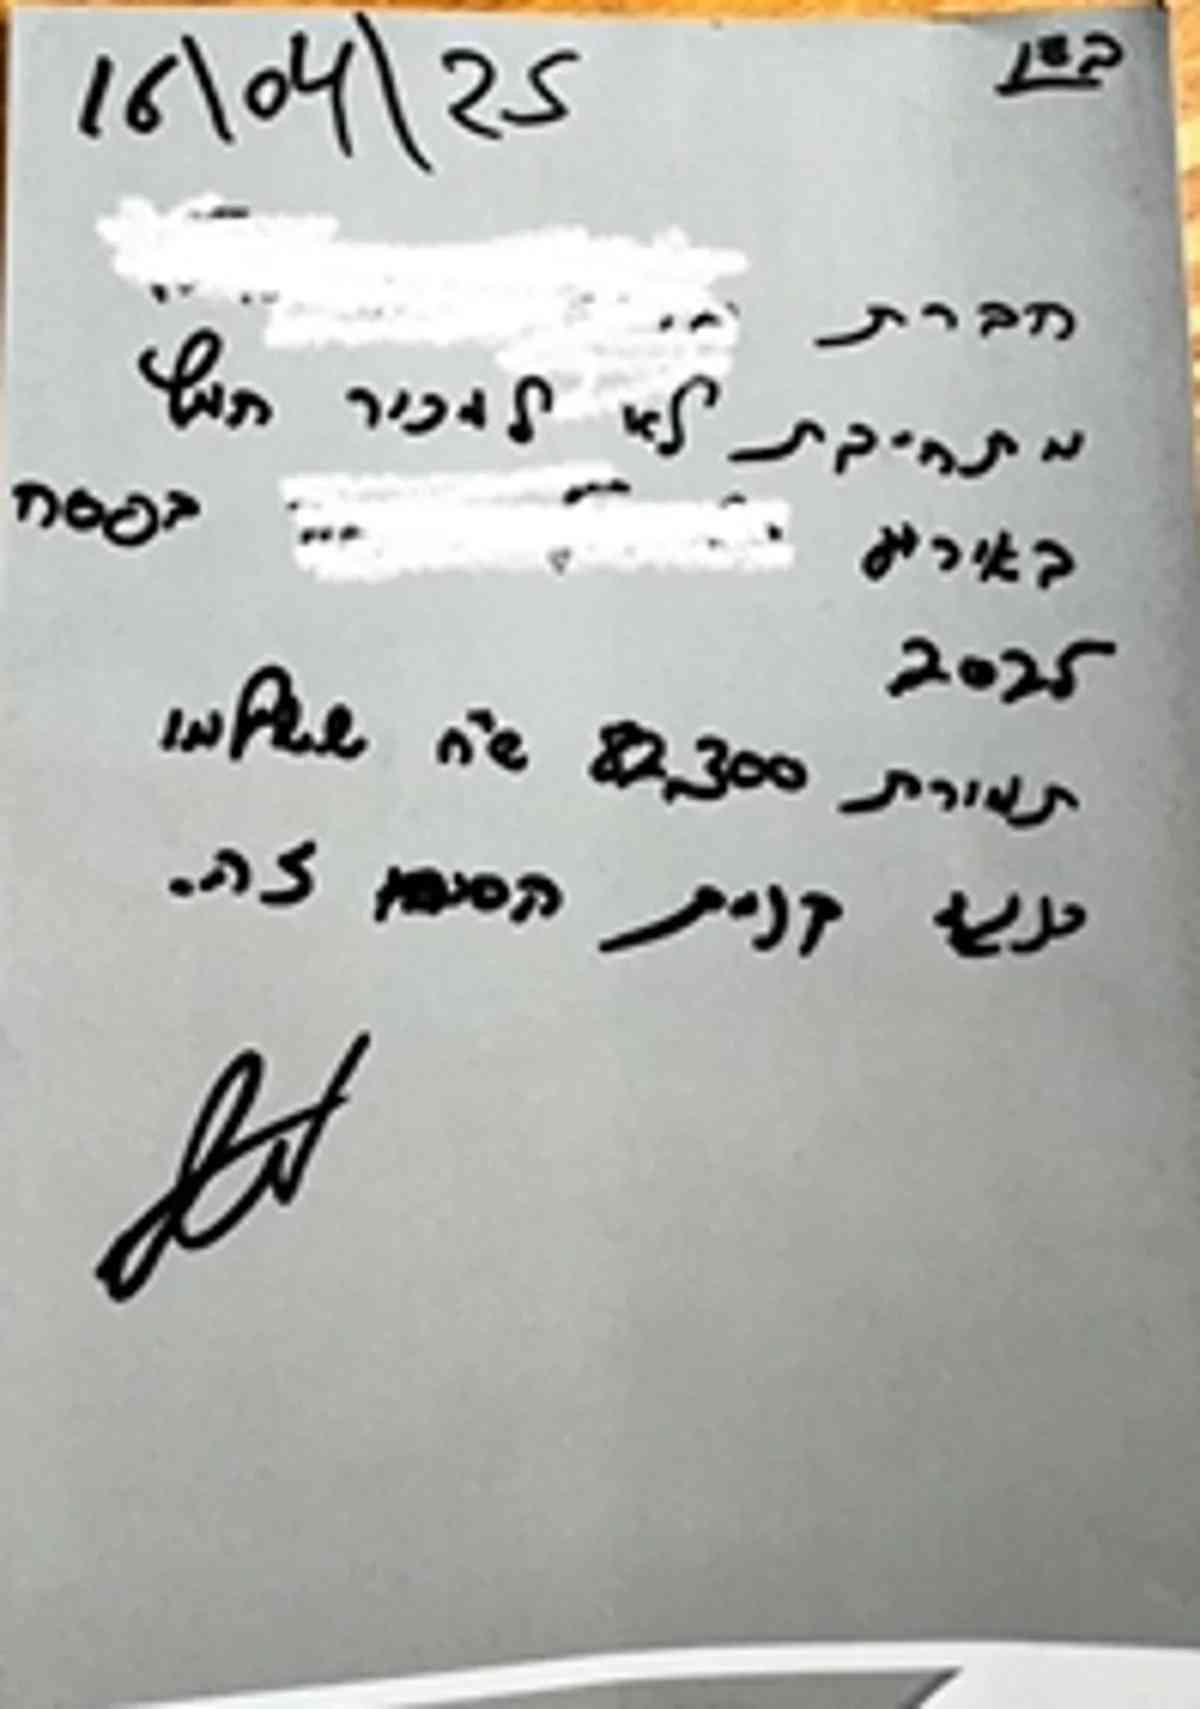 בס"ד
16\04\25
חברת
מתחייבת לא למכור חמץ
באירוע בפסח
2025
תמורת 82,300 ש"ח ששולמו
כנגד קניית הסחורה זה.